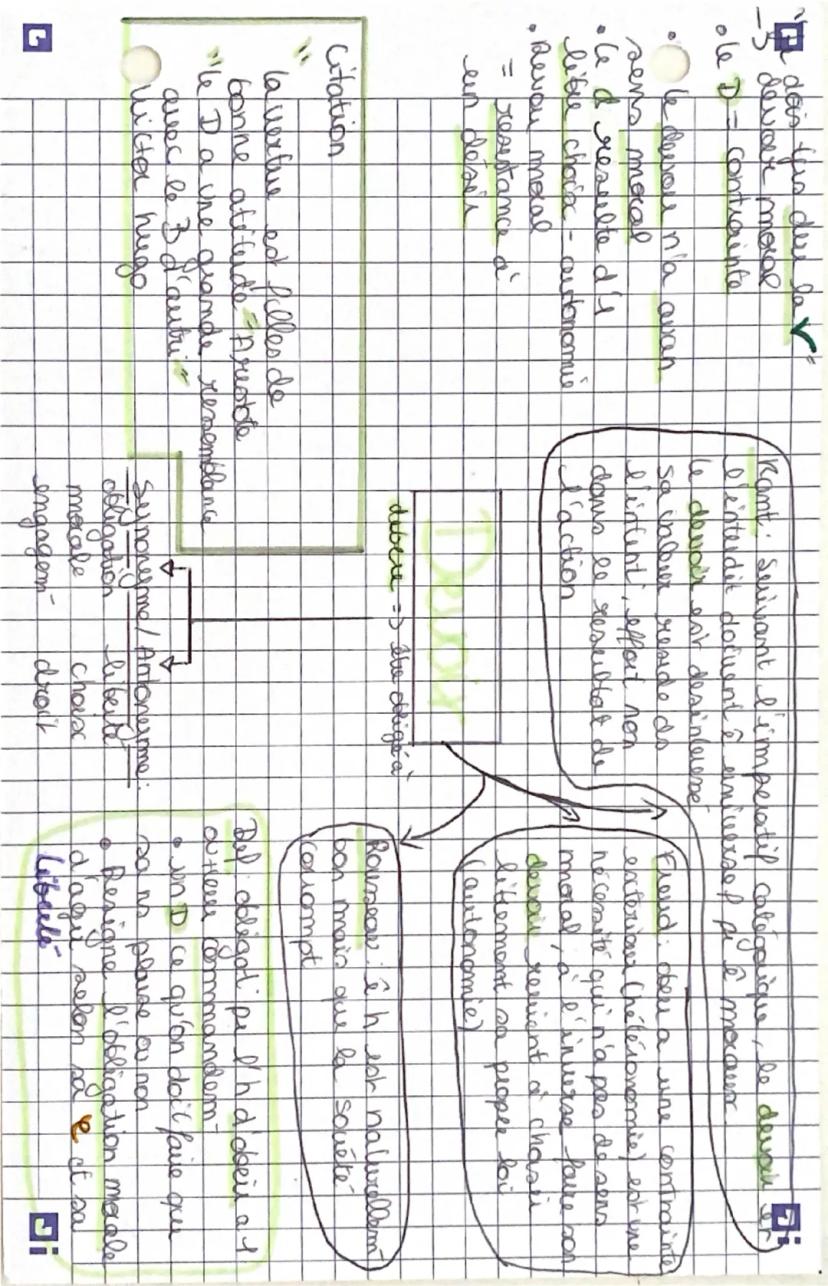 dois tu deu la V"
-> devoir moral
• le D = contrainte
• le devoir n'a aucun
sens moral
• le d resulte d'1
libre choix = autonomie
• Devoir moral
= resistance à
un désir
Kant: Suivant l'imperatif catégorique, le devoir et
l'interdit doivent ê universel pr ê moraux
le devoir est desinteressé
sa valeur reside ds
l'intent°, effort non
dans le resultat de
l'action
Devoir
debere => être obligé à
Freud: obeir a une contrainte
exterieur (hétéronomie) est une
nécessité qui n'a pas de sens
moral, à l'inverse faire son
devoir revient à choisir
librement sa propre loi
(autonomie)
Rousseau: ê h est naturellem-
bon mais que la société
corrompt
Citation
" la vertue est filles de
bonne atitude" Aristote
"le D a une grande ressemblance
avec le B d'autrui"
Victor hugo
Synonyme/Antonyme:
obligation liberté
morale choix
engagem- droit
Def: obligat° pr l'h d'obeir a 1
commandem-
• un D ce qu'on doit faire que
sa ns plaise ou non
• Designe l'obligation morale
d'agir selon sa et sa
liberté